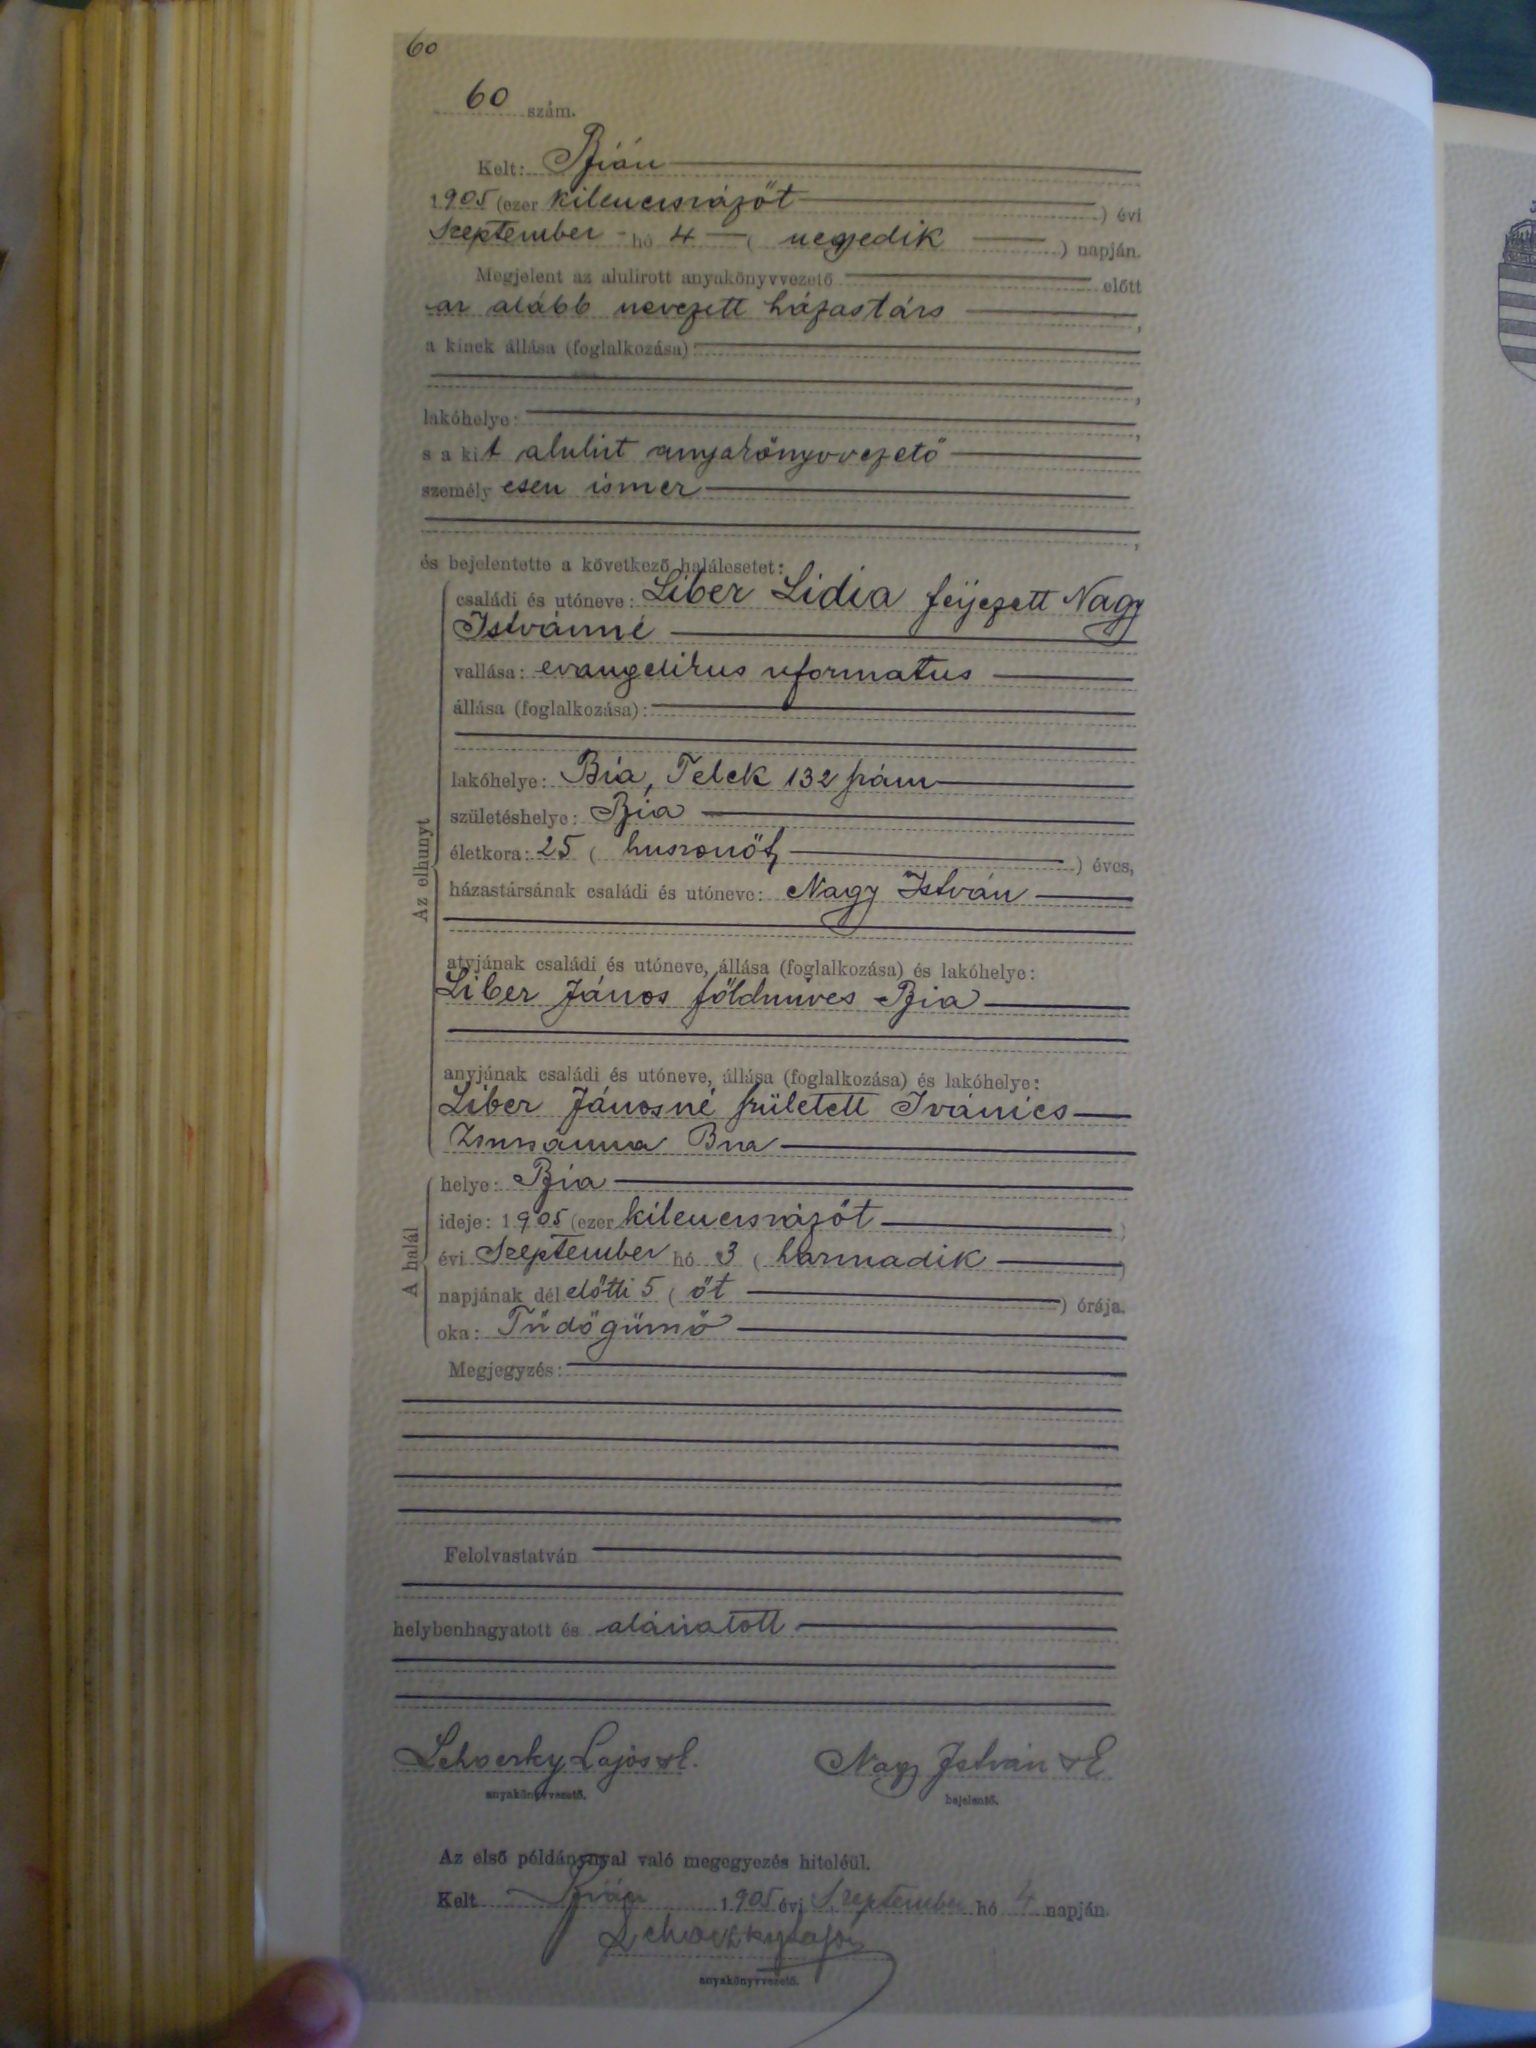 60
60 szám.
Kelt: Bián
1905 (ezer kilencszázöt ) évi
Szeptember hó 4 ( negyedik ) napján.
Megjelent az alulirott anyakönyvvezető előtt
az alább nevezett házastárs ,
a kinek állása (foglalkozása):
,
lakóhelye: ,
s a kit alulirt anyakönyvvezető
személyesen ismer
,
és bejelentette a következő halálesetet:
Az elhunyt
családi és utóneve: Liber Lidia férjezett Nagy
Istvánné
vallása: evangelikus reformatus
állása (foglalkozása):
lakóhelye: Bia, Telek 132 szám
születéshelye: Bia
életkora: 25 ( huszonöt ) éves,
házastársának családi és utóneve: Nagy István
atyjának családi és utóneve, állása (foglalkozása) és lakóhelye:
Liber János földmives Bia
anyjának családi és utóneve, állása (foglalkozása) és lakóhelye:
Liber Jánosné született Ivánics
Zsuzsánna Bia
A halál
helye: Bia
ideje: 1905 (ezer kilencszázöt )
évi Szeptember hó 3 ( harmadik )
napjának délelőtti 5 ( öt ) órája.
oka: Tüdőgümő
Megjegyzés:
Felolvastatván
helybenhagyatott és aláiratott
Lehoczky Lajos s.k. Nagy István s.k.
anyakönyvvezető. bejelentő.
Az első példánynyal való megegyezés hiteléül.
Kelt Bián 1905 évi Szeptember hó 4 napján.
Lehoczky Lajos
anyakönyvvezető.